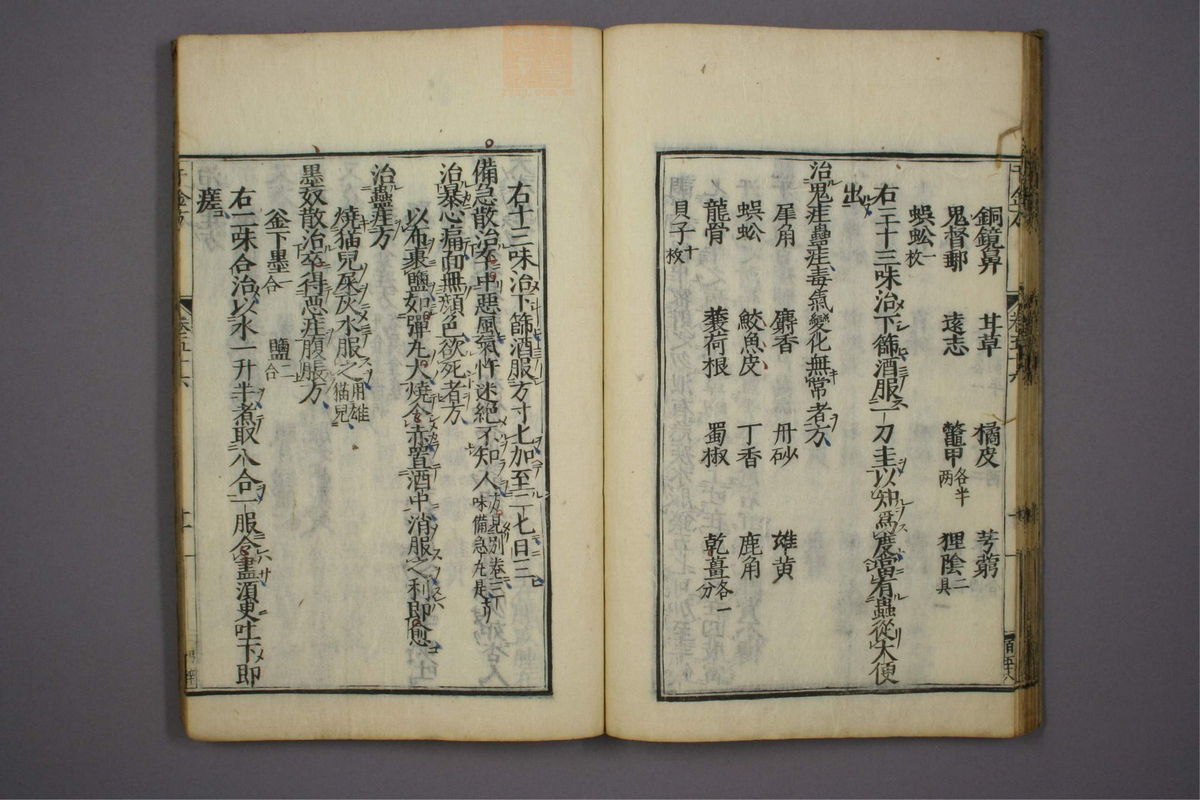 銅鏡鼻 甘草 橘皮 芎藭
鬼督郵 遠志 鼈甲各半两 狸陰二具
蜈蚣一枚
右三十三味治下篩酒服一刀圭以知爲度當有蟲從大便
出
治鬼疰蠱疰毒氣變化無常者方
犀角 麝香 丹砂 雄黄
蜈蚣 鮫魚皮 丁香 鹿角
龍骨 蘘荷根 蜀椒 乾薑各一分
貝子十枚
右十二味治下篩酒服方寸匕加至二七日三
備急散治卒中惡風氣忤迷絶不知人方見別卷三味備急丸是
治暴心痛面無顔色欲死者方
以布裹鹽如彈丸大燒令赤置酒中消服之利即愈
治蠱疰方
燒猫兒屎灰水服之用雄猫兒
墨奴散治卒得惡疰腹脹方
釜下墨一合 鹽二合
右二味合治以水一升半煮取八合一服令盡須臾吐下即
瘥